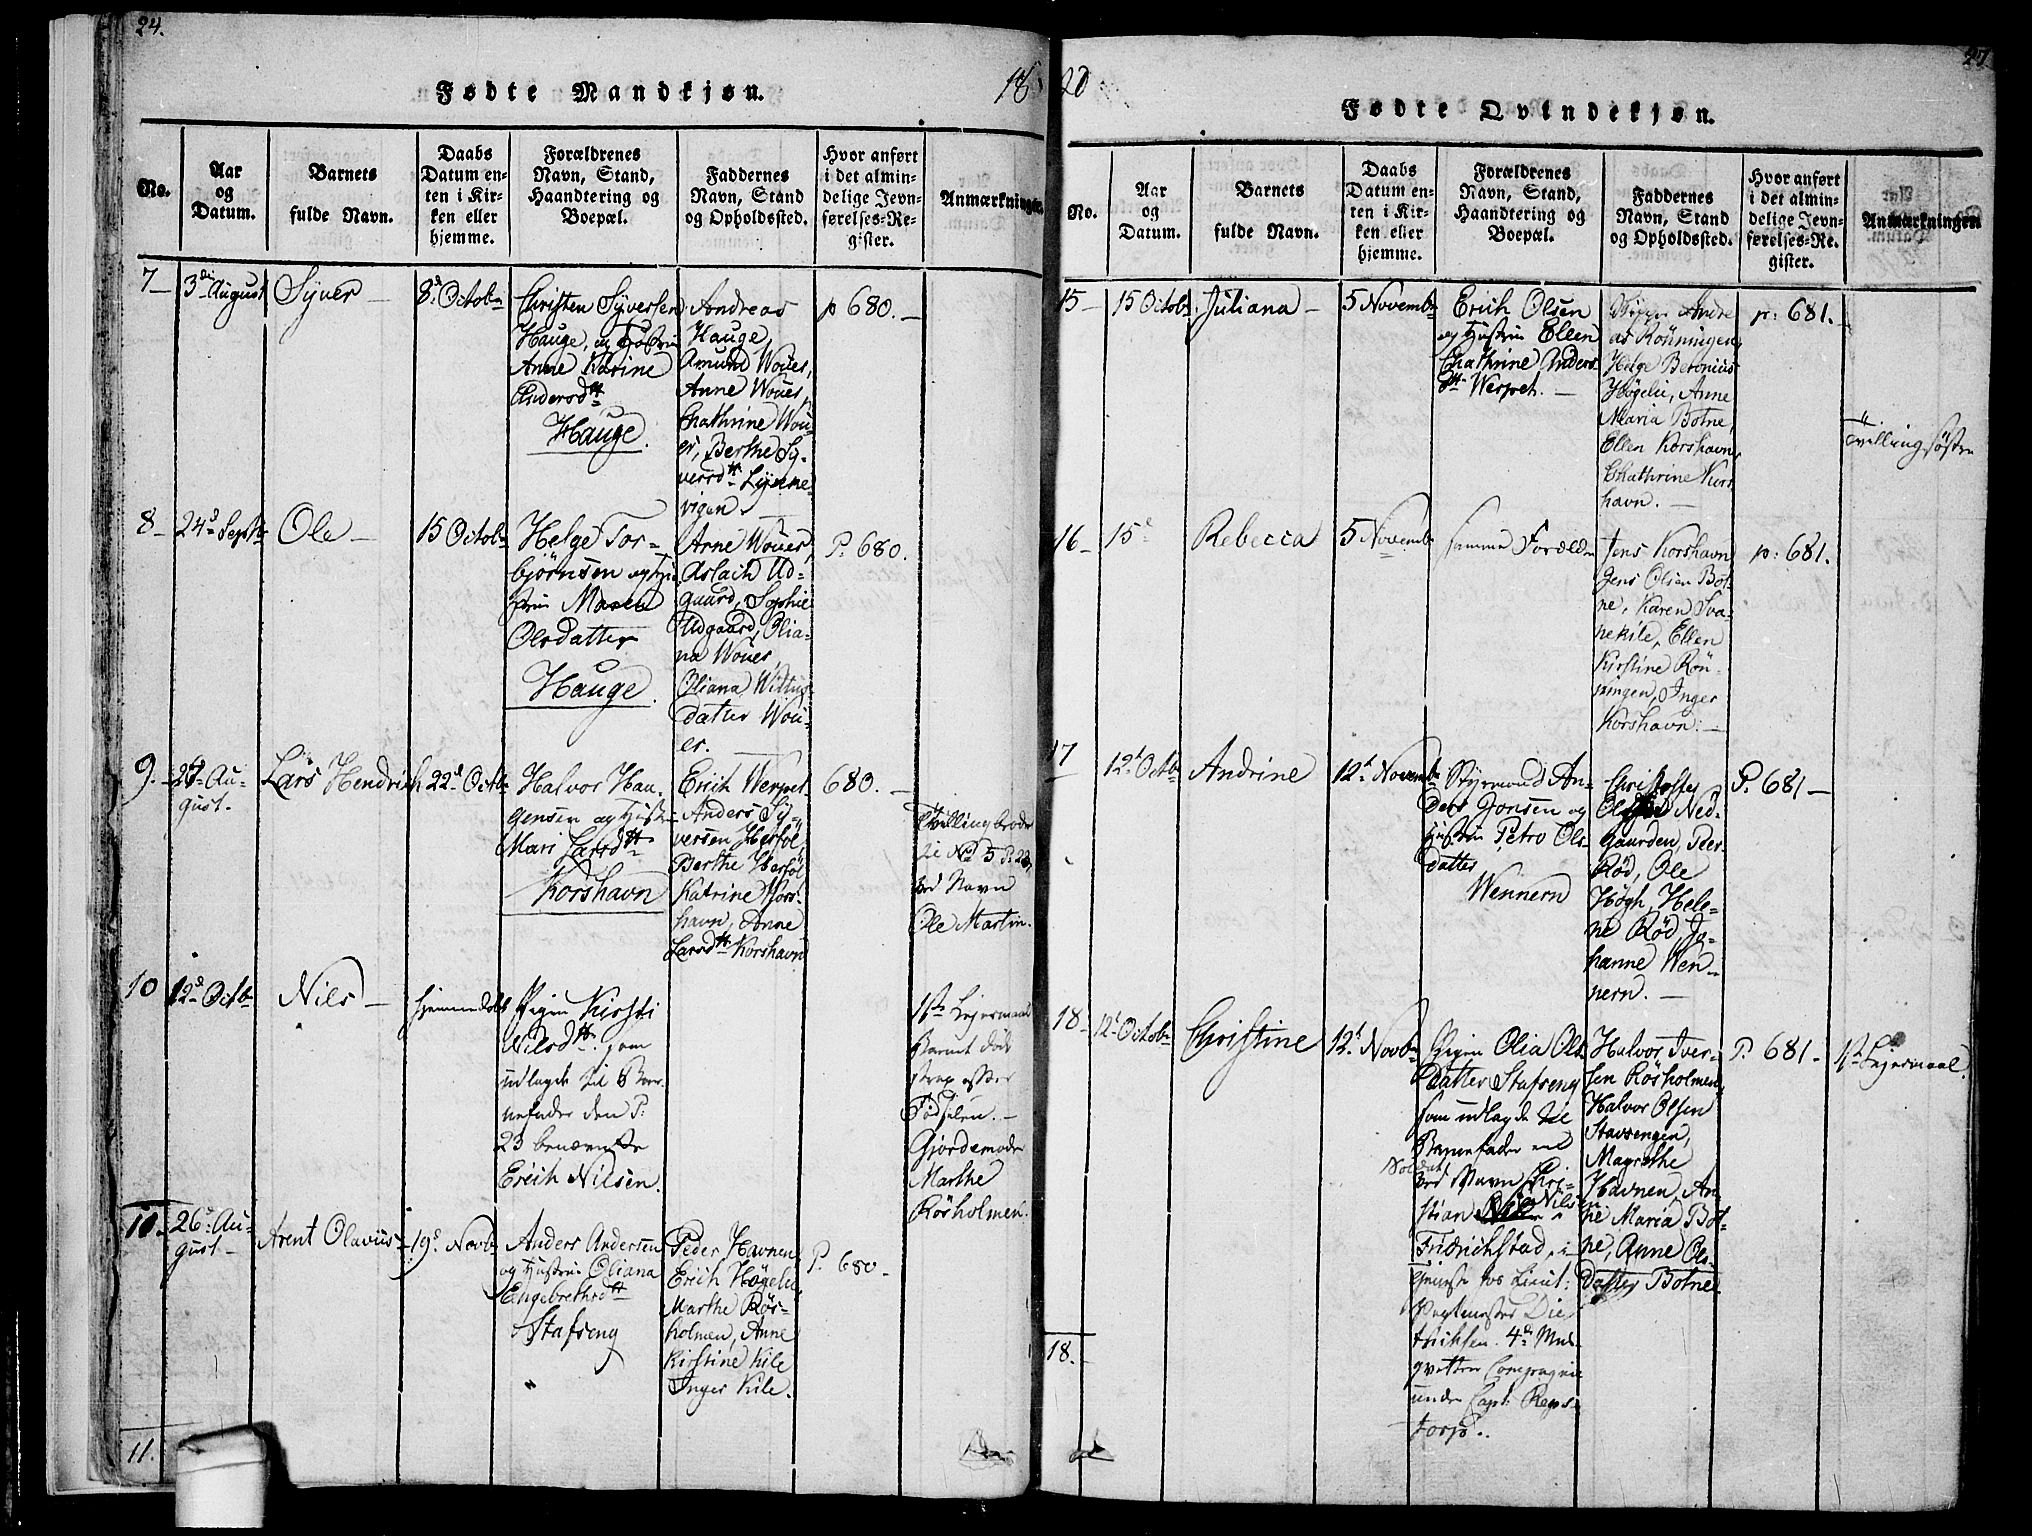 24.
Fødte Mandkjøn.
18
No.
Aar
og
Datum.
Barnets
fulde Navn.
Daabs
Datum en-
ten i Kir-
ken eller
hjemme.
Forældrenes
Navn, Stand,
Haandtering og
Boepæl.
Faddernes
Navn, Stand
og Opholdssted.
Hvor anført
i det almin-
delige Jevn-
førelses-Re-
gister.
Anmærkninger.
7
3die August
Syver
8d Octobr
Christen Syversen
Hauge, og Hustrue
Anne Karine
Andersdtt
Hauge.
Andreas
Hauge,
Amund Wouer,
Anne Wouer,
Chathrine Wou-
er, Berthe Sy-
versdtt Lynne-
vigen
p 680.
8
24d Septr
Ole
15 Octobr
Helge Tor-
bjørnsen og Hu-
strue Maren
Olsdatter
Hauge.
Arne Wouer,
Aslach Ud-
gaard, Sophie
Udgaard, Olia-
na Wouer,
Oliana Wittus-
datter Wou-
er.
P. 680.
9.
27 Au-
gust.
Lars Hendrich
22d Octbr
Halvor Hau-
gensen og Hustr
Mari Larsdtt
Korshavn
Erich Werpet
Anders Sy-
versen Herføl,
Berthe Herføl
Katrine Kors-
havn, Anne
Larsdtt Korshavn
680.
Tvillingbroder
til No 5 P. 23,
ved Navn
Ole Martin.
10
12d Octbr
Nils
hjemmedøbt
Pigen Kirsti
Nilsdtt. som
udlagde til Bar-
nefader den P:
23 benævnte
Erich Nilsen.
1ste Lejermaal
Barnet døde
strax efter
Fødselen.
Gjordemoder
Marthe
Rösholmen.
11.
26d Au-
gust
Arent Olavus
19d Novbr
Anders Andersen
og Hustrue Oliana
Engebrethsdtt
Stafseng
Peder Havnen
Erich Høgelie
Marthe Rös-
holmen, Anne
Kirstine Kile
Inger Kile.
P. 680.
11.
20
Fødte Qvindekjøn.
No.
Aar
og
Datum.
Barnets
fulde Navn.
Daabs
Datum en-
ten i Kir-
ken eller
hjemme.
Forældrenes
Navn, Stand,
Haandtering og
Boepæl.
Faddernes
Navn, Stand
og Opholdssted.
Hvor anført
i det almin-
delige Jevn-
førelses-Re-
gister.
Anmærkningen
15
15 Octobr
Juliana
5 Novembr
Erich Olsen
og Hustrue Ellen
Chathrine Anders
dtt Werpet.
Andre
as Rönningen,
Helge Beronius
Högelie, Anne
Maria Botne,
Ellen Korshavn,
Chathrine Kors
havn.
p: 681.
Tvillingsøstre
16
15d
Rebecca
5 Novembr
samme Forældre
Jens Korshavn
Jens Olsen Bot-
ne, Karen Sva-
nekile, Ellen
Kirstine Rön-
ningen, Inger
Korshavn.
p: 681.
17
12d Octbr
Andrine
12d Novembr
Styrmand An-
ders Jonsen og
Hustrue Petro Ols-
datter
Wennern
Christoffer
Olsen Ned-
gaarden, Peer
Röd, Ole
Högh, Hele-
ne Röd, Jo-
hanne Wen-
nern.
P. 681
18
12d Octobr
Christine
12d Novbr
Pigen Olia Ols-
datter Stafseng
som udlagde til
Barnefader en
Soldat
ved Navn Chri-
stian Nils
Fridrichstad, i
Tjeneste hos Lieut:
Die
trichsen. 4d Mus-
qvetteer Compagnie
under Capt: Reps-
torp.
Halvor Iver-
sen Rösholmen,
Halvor Olsen
Stavsengen,
Magrethe
Havnen, An-
ne Maria Bot-
ne, Anne Ols-
datter Botne
P. 681.
1ste Lejermaal.
18.